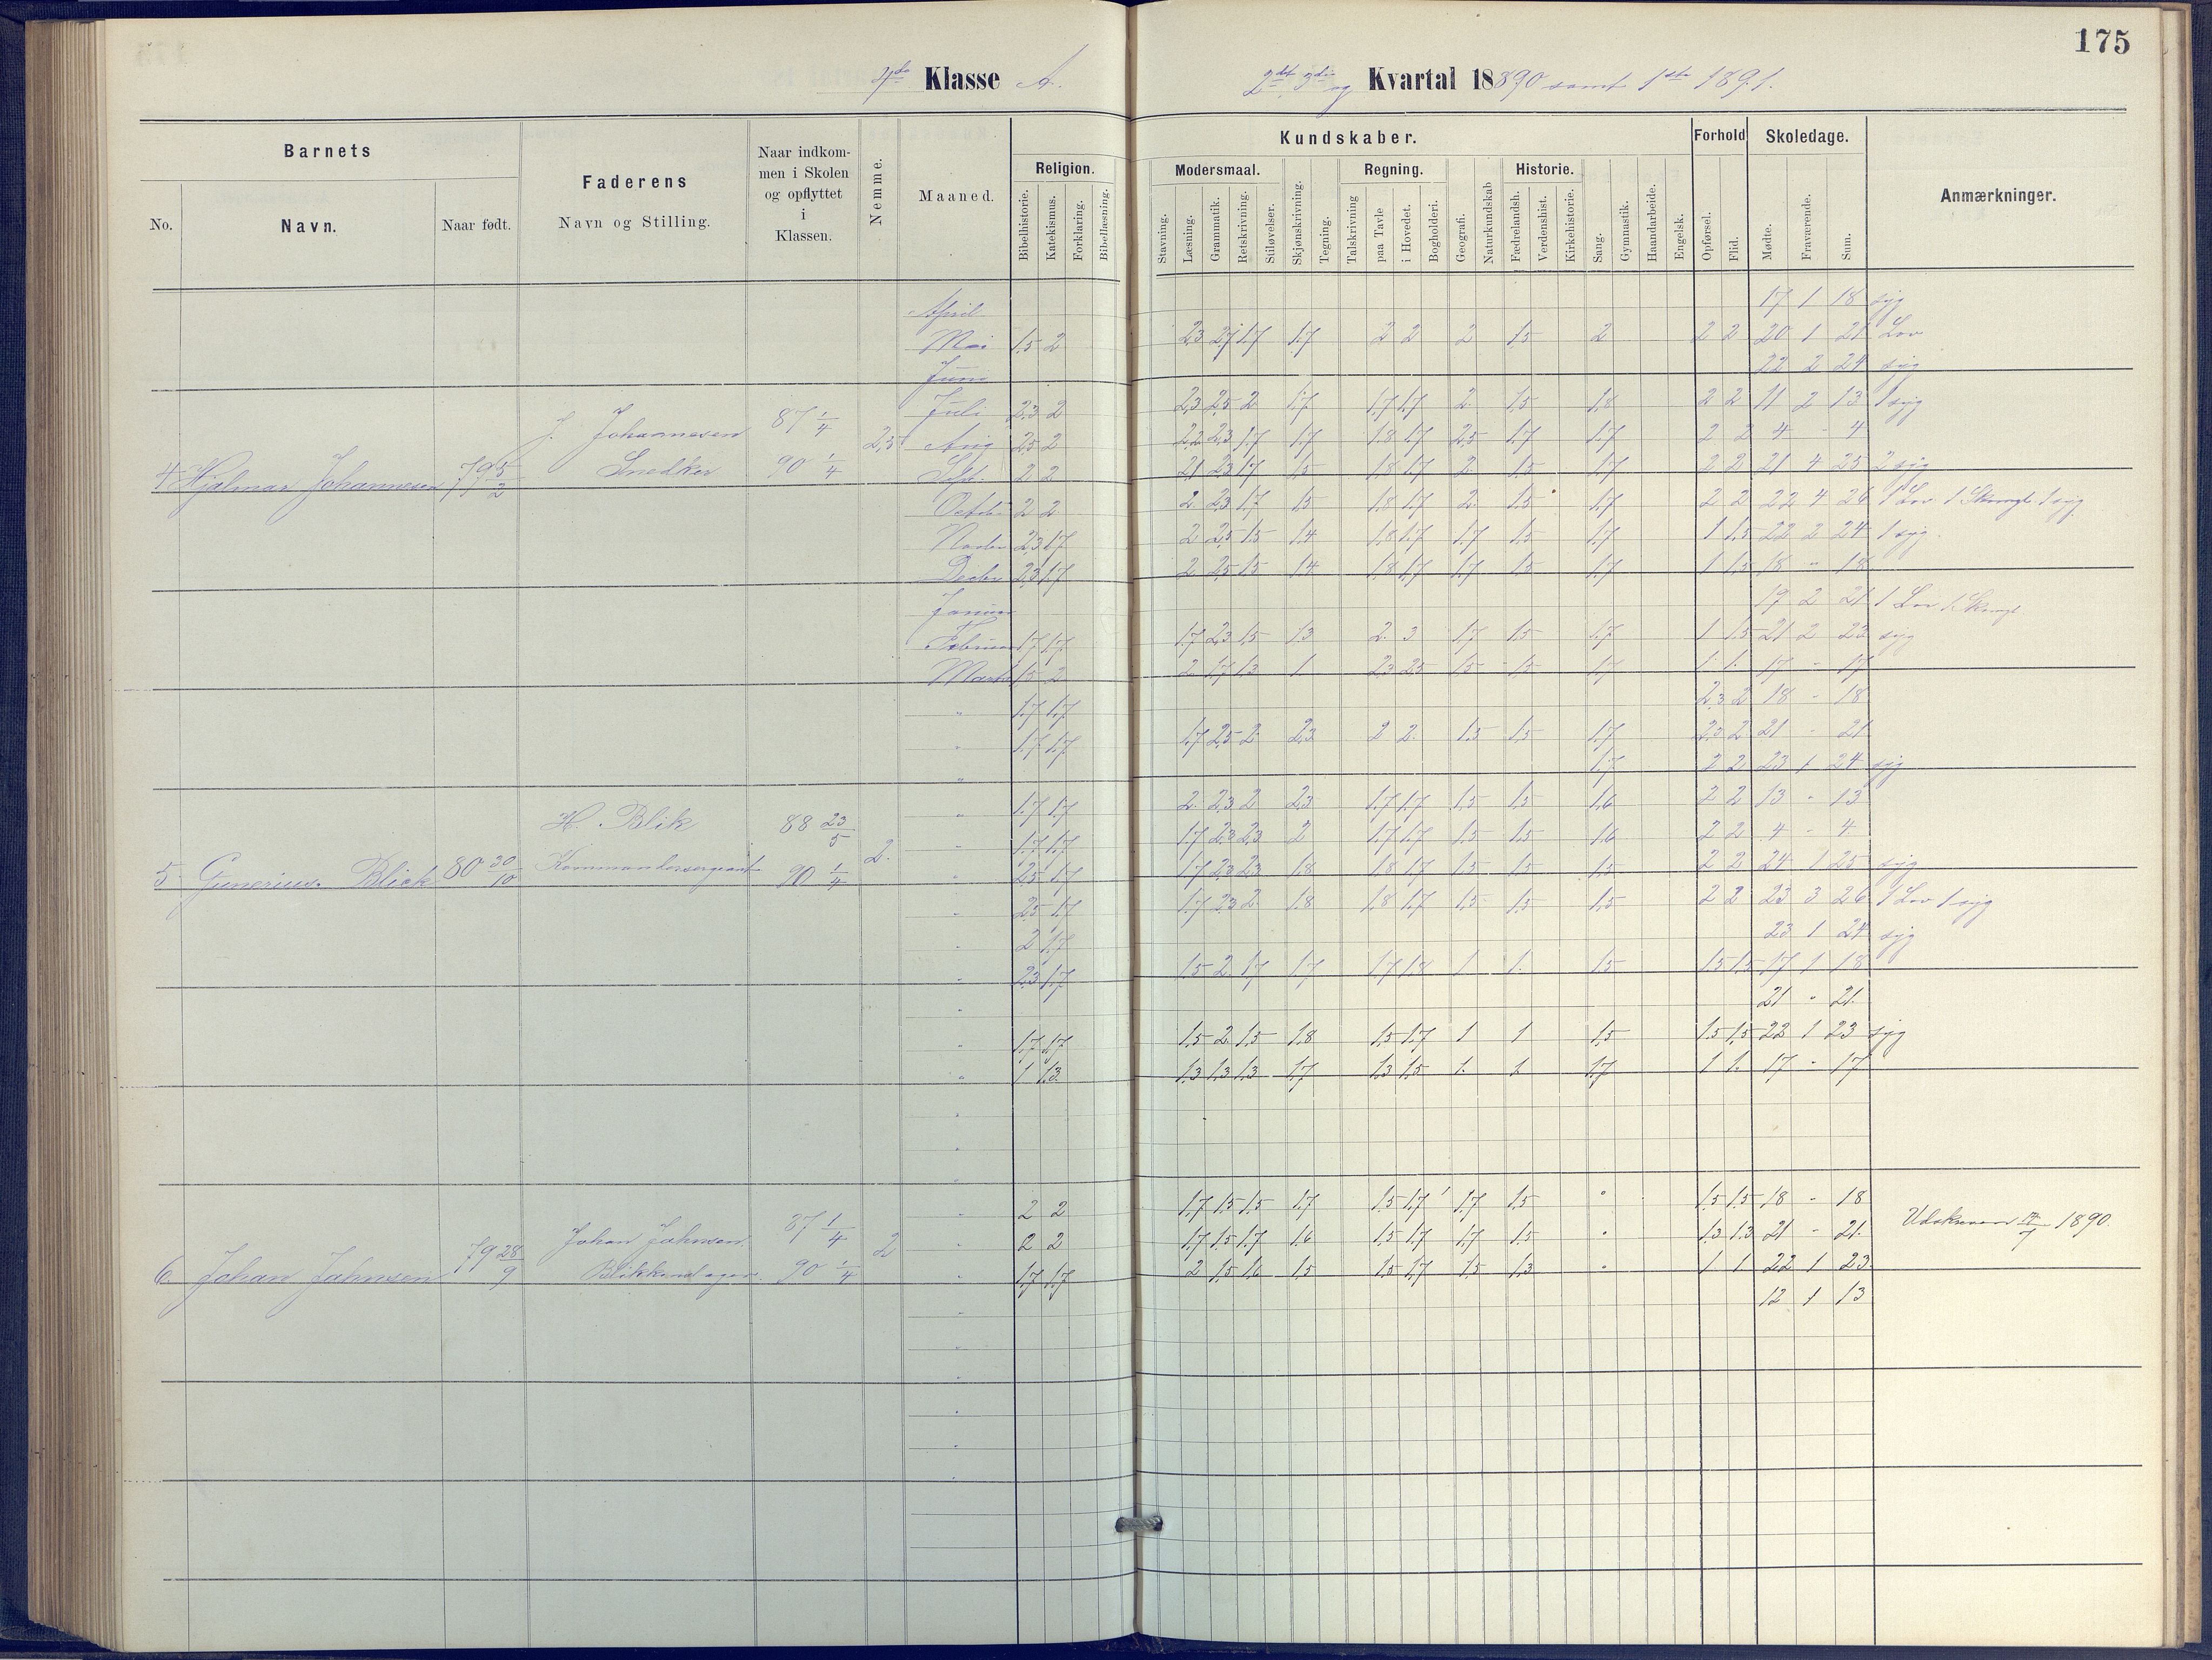 175
4de Klasse A.
2det 3die og Kvartal 1890 samt 1ste 1891.
Barnets
No.
Navn.
Naar født.
Faderens
Navn og Stilling.
Naar indkom-
men i Skolen
og opflyttet
i
Klassen.
Nemme.
Maaned.
Kundskaber.
Religion.
Bibelhistorie.
Katekismus.
Forklaring.
Bibellæsning.
Modersmaal.
Stavning.
Læsning.
Grammatik.
Retskrivning.
Stiløvelser.
Skjønskrivning.
Tegning.
Regning.
Talskrivning
paa Tavle
i Hovedet.
Bogholderi.
Geografi.
Naturkundskab
Historie.
Fædrelandsh.
Verdenshist.
Kirkehistorie.
Sang.
Gymnastik.
Haandarbeide.
Engelsk.
Forhold
Opførsel.
Flid.
Skoledage.
Mødte.
Fraværende.
Sum.
Anmærkninger.
April 17 1 18 syg
Mai 1,5 2 2,3 2,7 1,7 1,7 2 2 2 1,5 2 2 2 20 1 21 Lov
Juni 22 2 24 syg
Juli 2,3 2 2,3 2,5 2 1,7 1,7 1,7 2 1,5 1,8 2 2 11 2 13 1 syg
4 Hjalmar Johannesen 79 5/2
J. Johannesen
Snedker
87 1/4
90 1/4
2,5
Aug 2,5 2 2,3 2,3 1,7 1,7 1,8 1,7 2,5 1,7 1,7 2 2 4 - 4
Sept. 2 2 2,1 2,3 1,7 1,5 1,8 1,7 2 1,5 1,7 2 2 21 4 25 2 syg
Octob 2 2 2 2,3 1,7 1,5 1,8 1,7 2 1,5 1,7 2 2 22 4 26 1 Lov 1 syg
Novbr 2,3 1,7 2 2,5 1,5 1,4 1,8 1,7 1,7 1,5 1,7 1 1,5 22 2 24 1 syg
Decbr 2,3 1,7 2 2,5 1,5 1,4 1,8 1,7 1,7 1,5 1,7 1 1,5 18 - 18
Januar 19 2 21 1 Lov
Februar 1,7 1,7 1,7 2,3 1,5 1,3 2 3 1,7 1,5 1,7 1 1,5 21 2 23 syg
Marts 1,5 2 2 1,7 1,3 1 2,3 2,5 1,5 1,5 1,7 1 1 17 - 17
" 1,7 1,7 2,3 2 18 - 18
" 1,7 1,7 1,7 2,5 2 2,3 2 2 1,5 1,5 1,7 2,3 2 21 - 21
" 1,7 2 2 23 1 24 syg
" 1,7 1,7 2 2,3 2 2,3 1,7 1,7 1,5 1,5 1,6 2 2 13 - 13
5 Gunerius Blick 80 30/10
H. Blik
Kommandersergeant
88 23/5
90 1/4
2
" 1,7 1,7 1,7 2,3 2,3 2 1,7 1,7 1,5 1,5 1,6 2 2 4 - 4
" 2,5 1,7 1,7 2,3 2,3 1,8 1,8 1,7 1,5 1,5 1,5 2 2 24 1 25 syg
" 2,5 1,7 1,7 2,3 2 1,8 1,8 1,7 1,5 1,5 1,5 2 2 23 3 26 1 Lov 1 syg
" 2 1,7 23 1 24 syg
" 2,3 1,7 1,5 2 1,7 1,7 1,7 1,8 1 1 1,5 1,5 1,5 17 1 18
" 21 - 21
" 1,7 1,7 1,5 2 1,5 1,8 1,5 1,7 1 1 1,5 1,5 1,5 22 1 23 syg
" 1 1,3 1,3 1,3 1,3 1,7 1,3 1,5 1 1 1,7 1 1 17 - 17
6 Johan Jahnsen 79 28/9
Johan Jahnsen
87 1/4
90 1/4
2
" 2 2 1,7 1,5 1,5 1,7 1,5 1,7 1,7 1,5 " 1,5 1,5 18 - 18
" 2 2 1,7 1,5 1,7 1,6 1,5 1,7 1,7 1,5 " 1,3 1,3 21 - 21
" 1,7 1,7 2 1,5 1,6 1,5 1,5 1,7 1,5 1,3 " 1 1 22 1 23
12 1 13
1890.